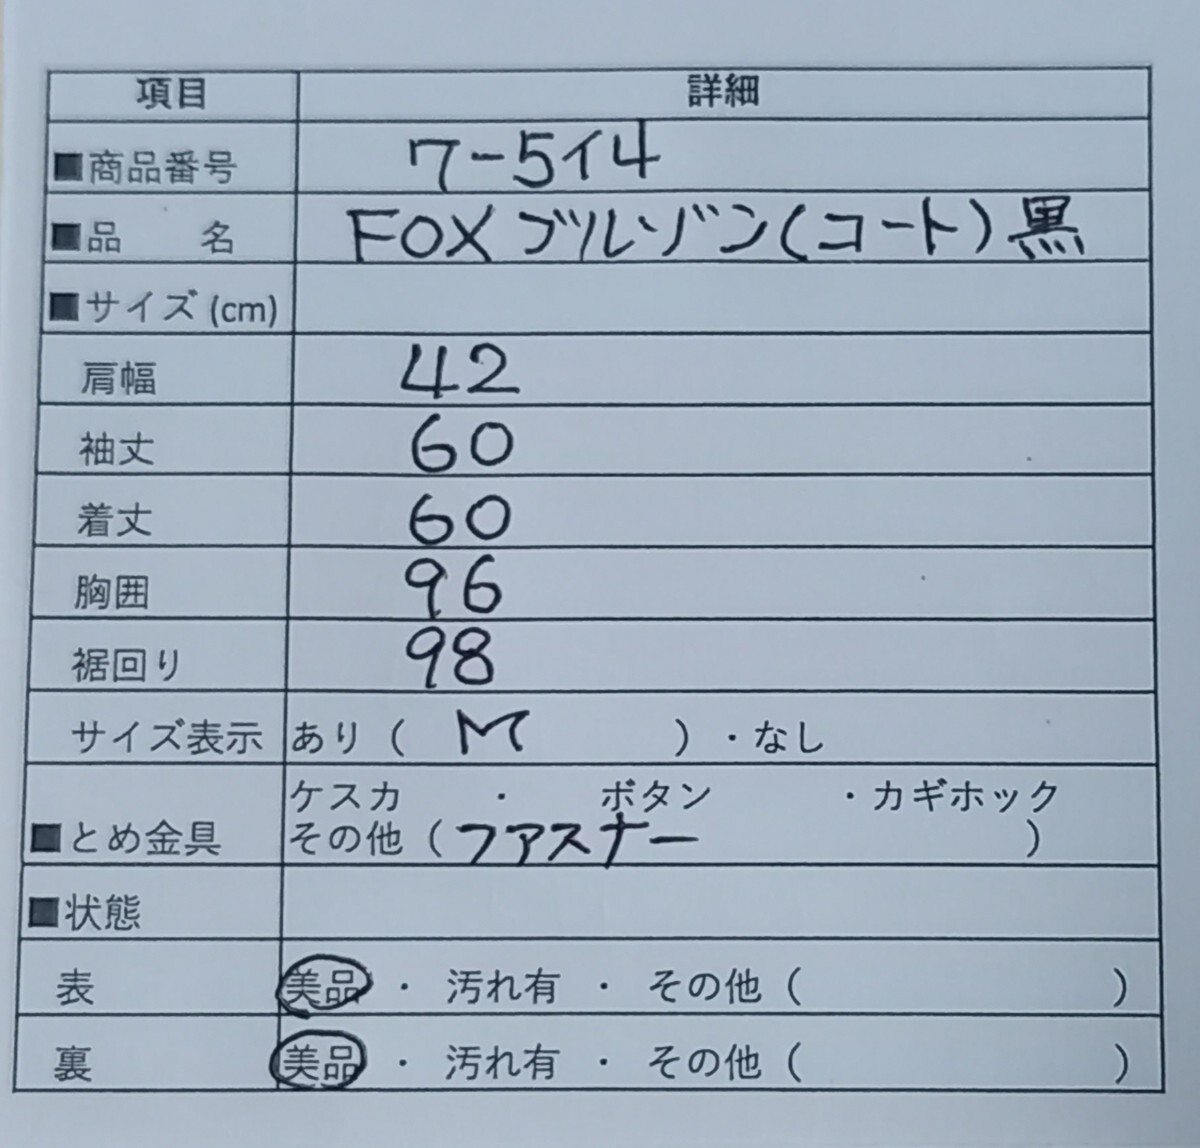 項目 詳細
■商品番号 7-5イ4
■品 名 FOXブルゾン(コート)黒
■サイズ(cm)
肩幅 42
袖丈 60
着丈 60
胸囲 96
裾回り 98
サイズ表示 あり( M )・なし
ケスカ ・ ボタン ・カギホック
■とめ金具 その他(ファスナー )
■状態
表 美品 ・ 汚れ有 ・ その他( )
裏 美品 ・ 汚れ有 ・ その他( )